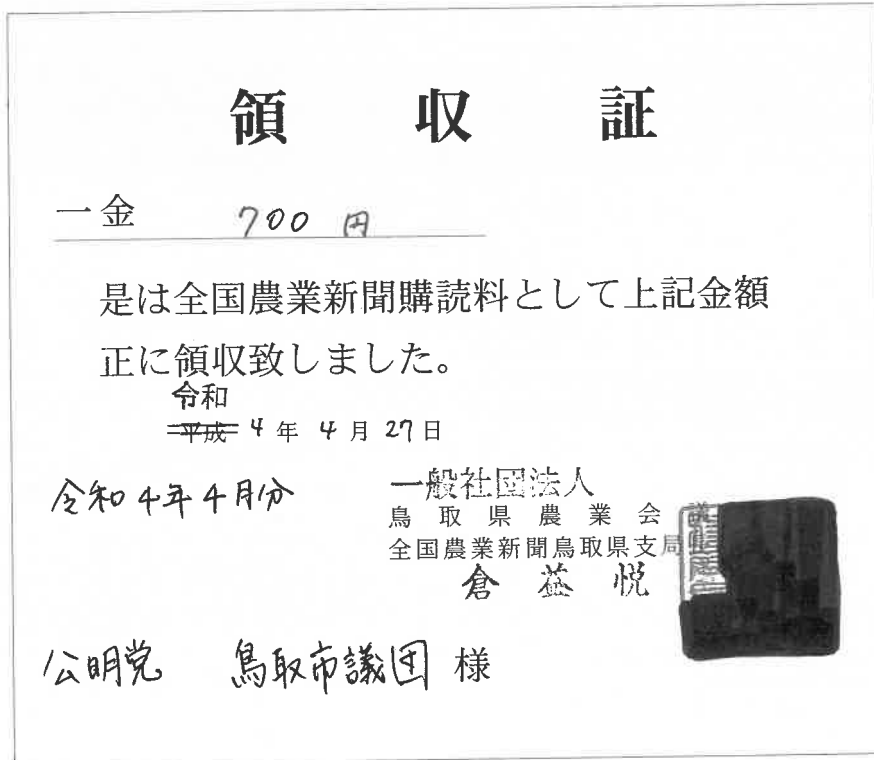 領収証
一金 700円
是は全国農業新聞購読料として上記金額
正に領収致しました。
令和
平成 4年 4月 27日
令和4年4月分
一般社団法人
鳥取県農業会議
全国農業新聞鳥取県支局
倉益悦
公明党 鳥取市議団 様